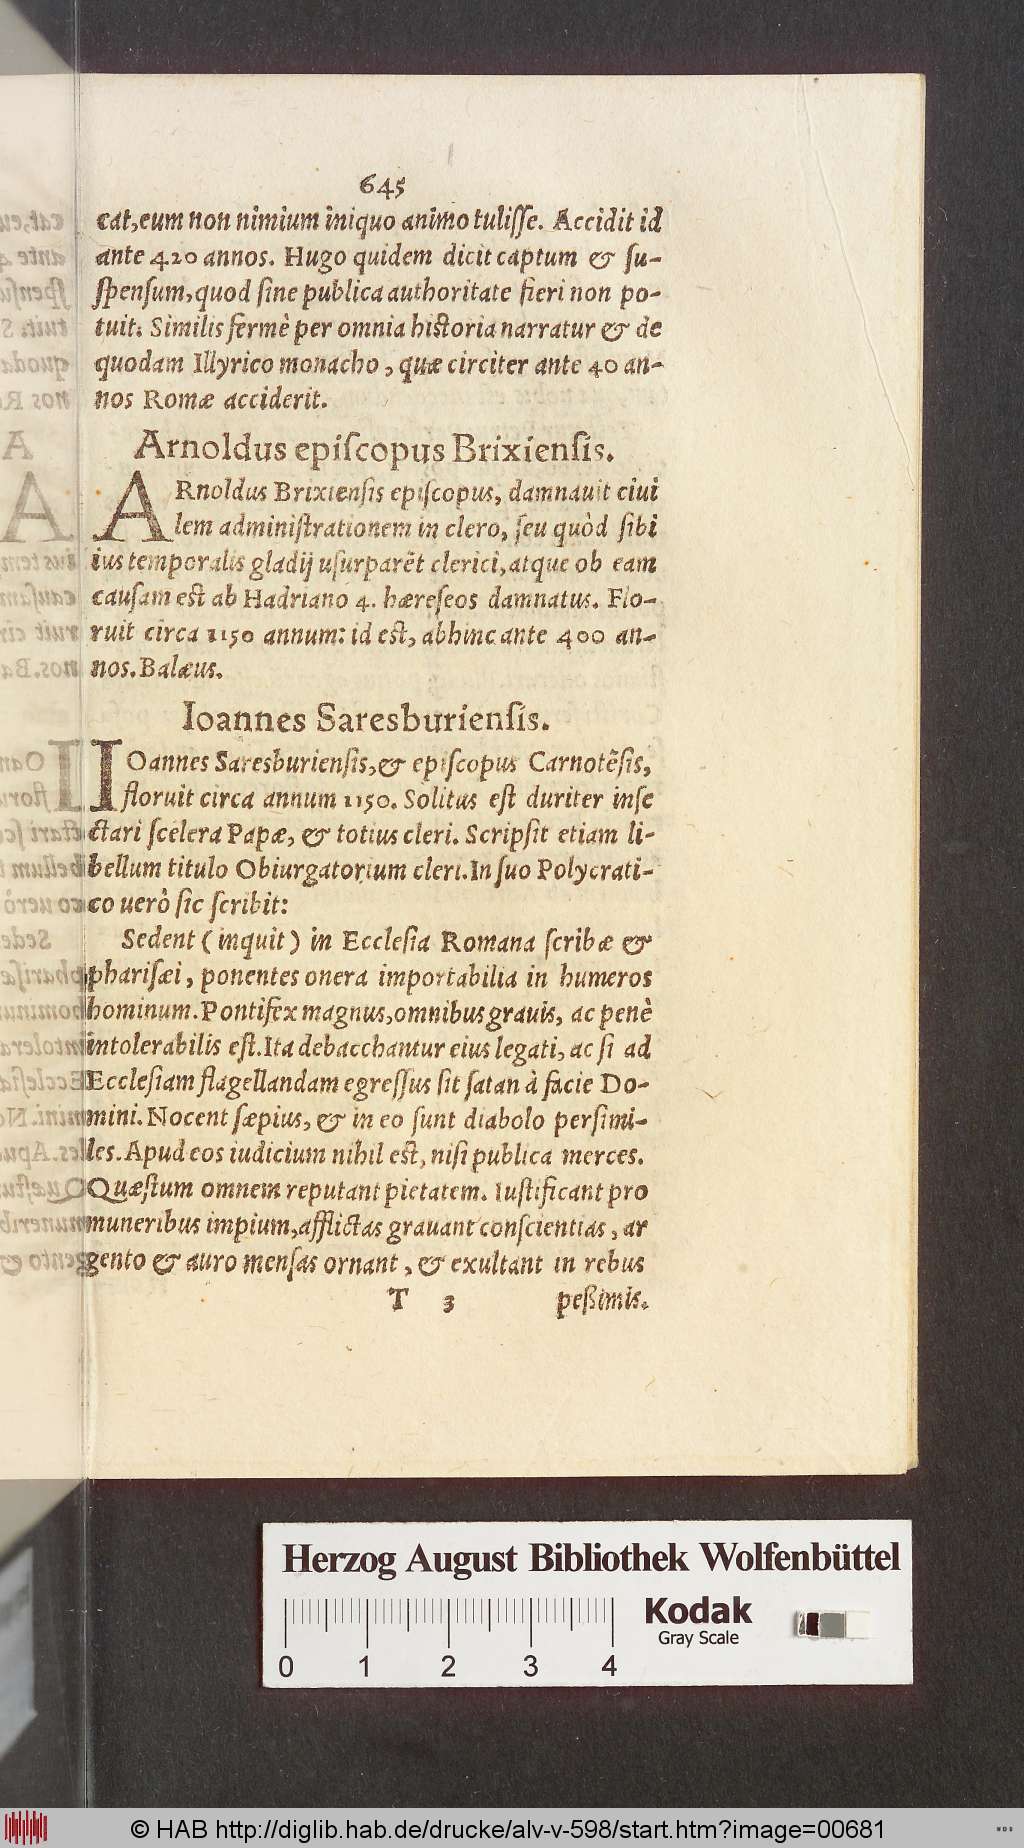 645
cat, eum non nimium iniquo animo tulisse. Accidit id
ante 420 annos. Hugo quidem dicit captum & su-
spensum, quod sine publica authoritate fieri non po-
tuit: Similis fermè per omnia historia narratur & de
quodam Illyrico monacho, quæ circiter ante 40 an-
nos Romæ acciderit.
Arnoldus episcopus Brixiensis.
ARnoldus Brixiensis episcopus, damnauit ciui
lem administrationem in clero, seu quòd sibi
ius temporalis gladij usurparẽt clerici, atque ob eam
causam est ab Hadriano 4. hæreseos damnatus. Flo-
ruit circa 1150 annum: id est, abhinc ante 400 an-
nos. Balæus.
Ioannes Saresburiensis.
IOannes Saresburiensis, & episcopus Carnotẽsis,
floruit circa annum 1150. Solitus est duriter inse
ctari scelera Papæ, & totius cleri. Scripsit etiam li-
bellum titulo Obiurgatorium cleri. In suo Polycrati-
co uerò sic scribit:
Sedent (inquit) in Ecclesia Romana scribæ &
pharisæi, ponentes onera importabilia in humeros
hominum. Pontifex magnus, omnibus grauis, ac penè
intolerabilis est. Ita debacchantur eius legati, ac si ad
Ecclesiam flagellandam egressus sit satan à facie Do-
mini. Nocent sæpius, & in eo sunt diabolo persimi-
les. Apud eos iudicium nihil est, nisi publica merces.
Quæstum omnem reputant pietatem. Iustificant pro
muneribus impium, afflictas grauant conscientias, ar
gento & auro mensas ornant, & exultant in rebus
T 3 peßimis.
Herzog August Bibliothek Wolfenbüttel
Kodak
Gray Scale
0 1 2 3 4
© HAB http://diglib.hab.de/drucke/alv-v-598/start.htm?image=00681